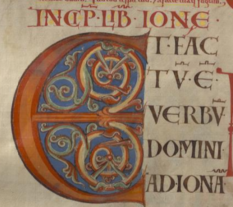 INCIP·LIB·IONE
ET·FAC
TV·E·
VERBV·
DOMINI
ADIONA